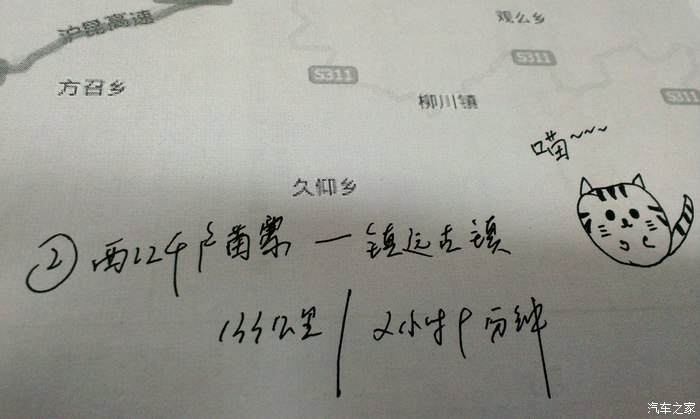 沪昆高速
观么乡
S311
S311
方召乡
柳川镇
S311
喵~~~
久仰乡
② 西江千户苗寨 — 镇远古镇
133公里 / 2小时9分钟
汽车之家